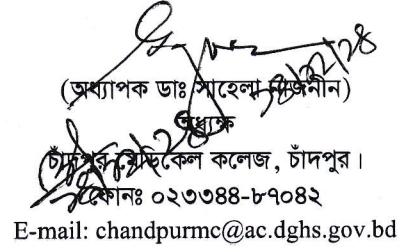 (অধ্যাপক ডাঃ সাহেলা নাজনীন)
অধ্যক্ষ
চাঁদপুর মেডিকেল কলেজ, চাঁদপুর।
ফোনঃ ০২৩৩৪৪-৮৭০৪২
E-mail: chandpurmc@ac.dghs.gov.bd